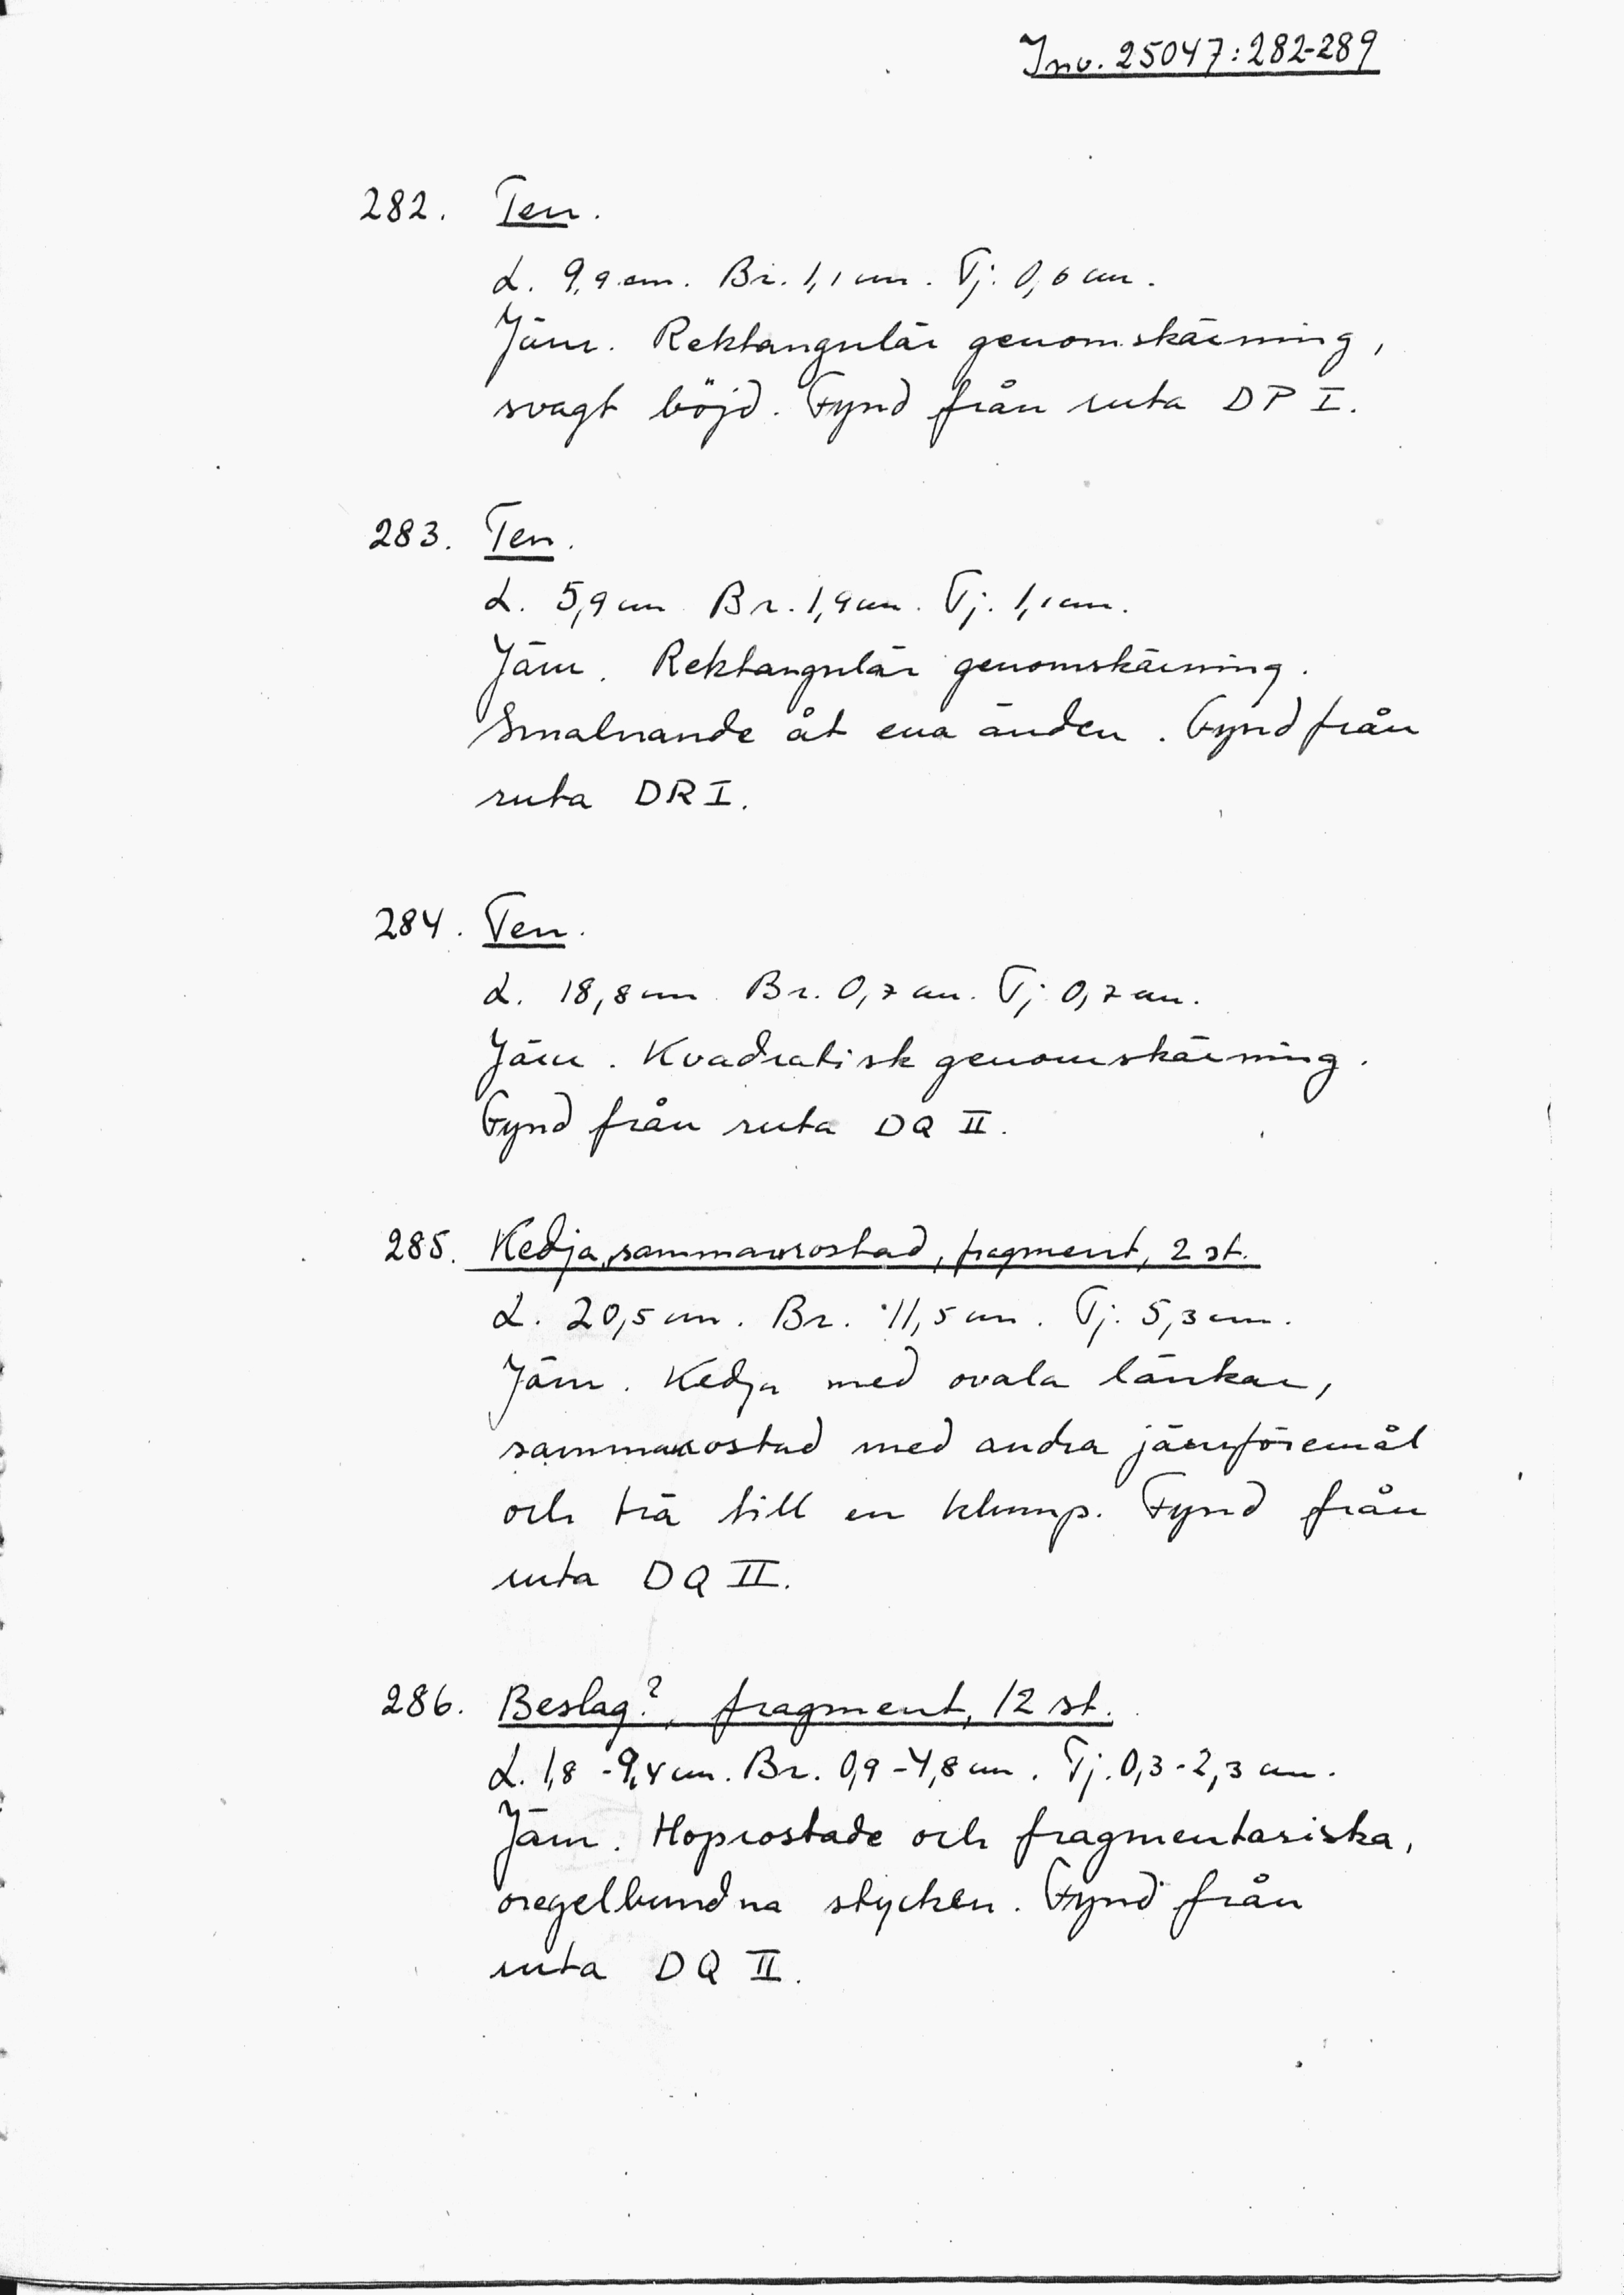 Inv. 25047:282-289
282. Ten.
L. 9,9 cm. Br. 1,1 cm. Tj. 0,6 cm.
Järn. Rektangulär genomskärning,
svagt böjd. Fynd från ruta DP I.
283. Ten.
L. 5,9 cm Br. 1,9 cm. Tj. 1,1 cm.
Järn. Rektangulär genomskärning.
Smalnande åt ena änden. Fynd från
ruta DR I.
284. Ten.
L. 18,8 cm Br. 0,7 cm. Tj. 0,7 cm.
Järn. Kvadratisk genomskärning.
Fynd från ruta DQ II.
285. Kedja, sammanrostad, fragment, 2 st.
L. 20,5 cm. Br. 11,5 cm. Tj. 5,3 cm.
Järn. Kedja med ovala länkar,
sammanrostad med andra järnföremål
och trä till en klump. Fynd från
ruta DQ II.
286. Beslag?, fragment, 12 st.
L. 1,8 - 9,4 cm. Br. 0,9 - 4,8 cm. Tj. 0,3 - 2,3 cm.
Järn. Hoprostade och fragmentariska,
oregelbundna stycken. Fynd från
ruta DQ II.